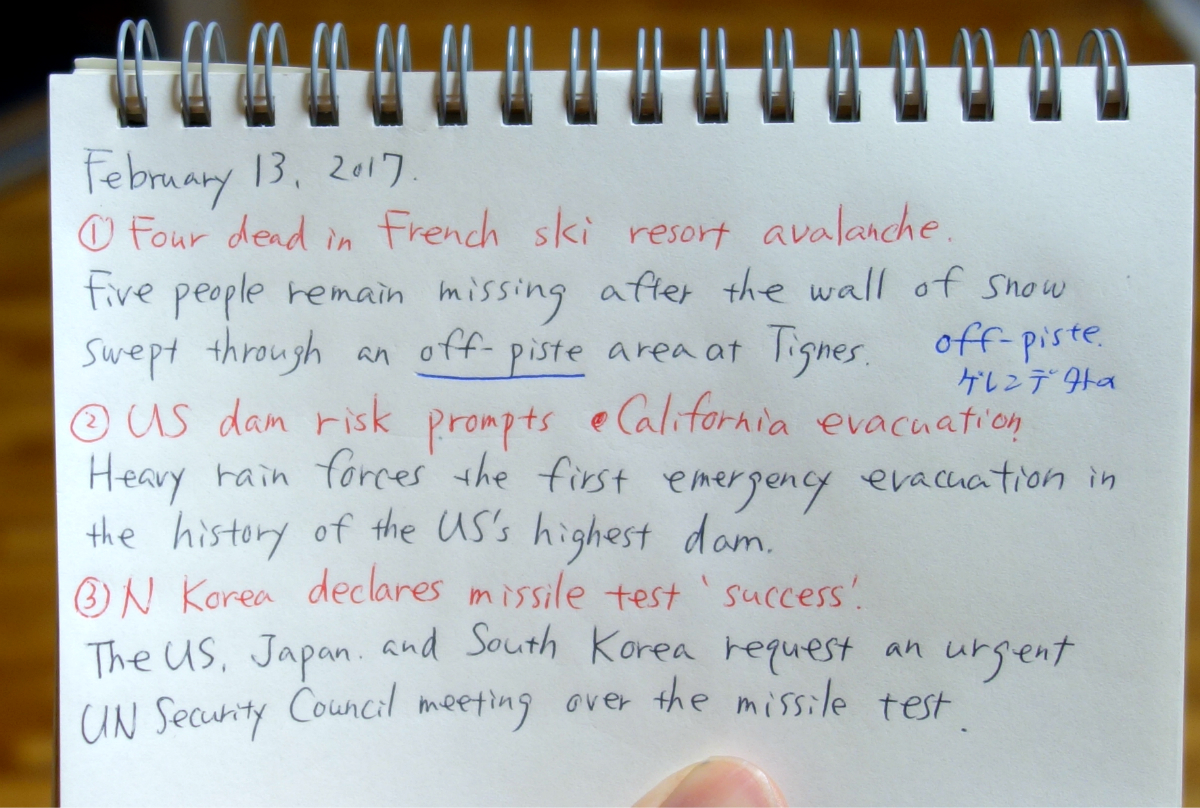 February 13, 2017.
① Four dead in French ski resort avalanche.
Five people remain missing after the wall of snow
swept through an off-piste area at Tignes.
off-piste.
ゲレンデ外の
② US dam risk prompts California evacuation
Heavy rain forces the first emergency evacuation in
the history of the US's highest dam.
③ N Korea declares missile test 'success'.
The US, Japan. and South Korea request an urgent
UN Security Council meeting over the missile test.